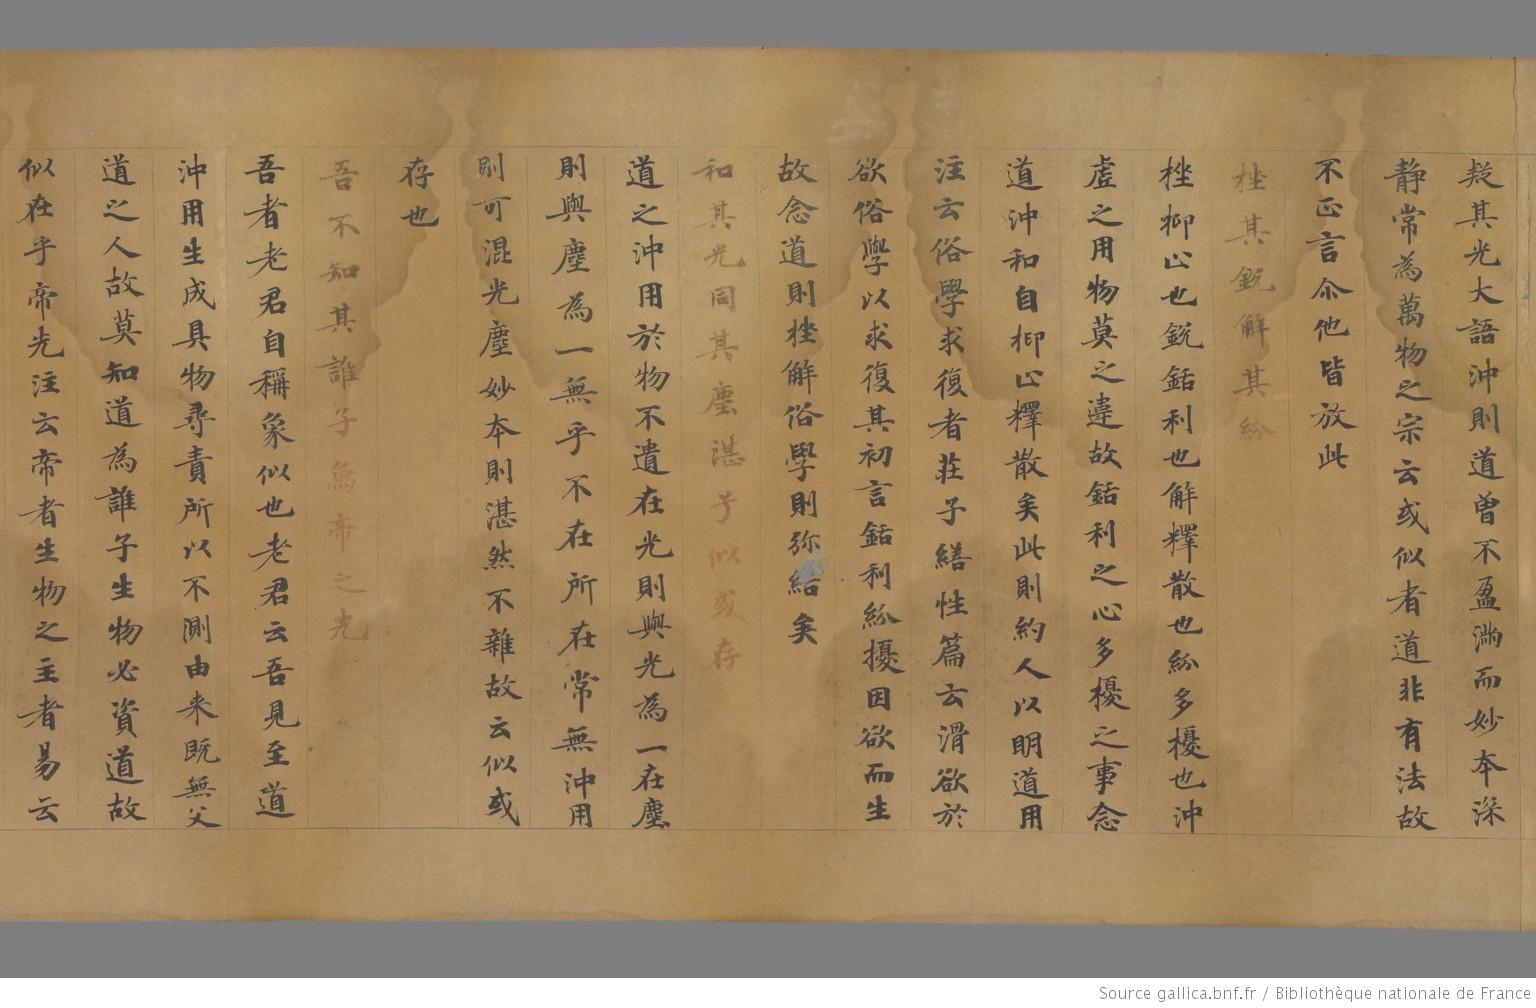 疑其光大語沖則道曾不盈滿而妙本深
靜常為萬物之宗云或似者道非有法故
不正言尒他皆放此
挫其銳解其紛
挫抑止也銳銛利也解釋散也紛多擾也沖
虛之用物莫之違故銛利之心多擾之事念
道沖和自抑止釋散矣此則約人以明道用
注云俗學求復者莊子繕性篇云滑欲於
欲俗學以求復其初言銛利紛擾因欲而生
故念道則挫解俗學則弥結矣
和其光同其塵湛兮似或存
道之沖用於物不遺在光則與光為一在塵
則與塵為一無乎不在所在常無沖用
則可混光塵妙本則湛然不雜故云似或
存也
吾不知其誰子象帝之先
吾者老君自稱象似也老君云吾見至道
沖用生成具物尋責所以不測由来既無父
道之人故莫知道為誰子生物必資道故
似在乎帝先注云帝者生物之主者易云
Source gallica.bnf.fr / Bibliothèque nationale de France